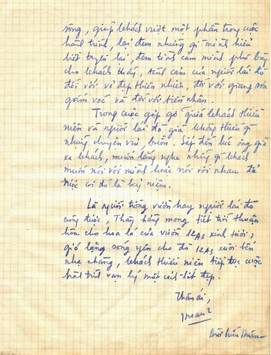 sông, giúp khách vượt một phần trong cuộc
hành trình, lại đem những gì mình hiểu
biết truyền lại, đem tình cảm mình phô bày
cho khách thấy, tình cảm của người lái đò
đối với vẻ đẹp thiên nhiên, đối với giang sơn
gấm vóc và đối với tiền nhân.
Trong cuộc gặp gỡ giữa khách thiếu
niên và người lái đò già không thiếu gì
những chuyện vui buồn. Sắp đến lúc ông già
xa khách, muốn lắng nghe những gì khách
muốn nói với mình hoặc nói với nhau từ
trước coi đó là kỷ niệm.
Là người trồng vườn hay người lái đò
cũng được. Thầy hằng mong tiết trời thuận
hòa cho hoa lá của vườn xinh tươi,
gió lặng sóng yên cho đò xuôi bến
nhẹ nhàng, khách thiếu niên tiếp tục cuộc
hành trình vạn lý một cách tốt đẹp.
Thân ái,